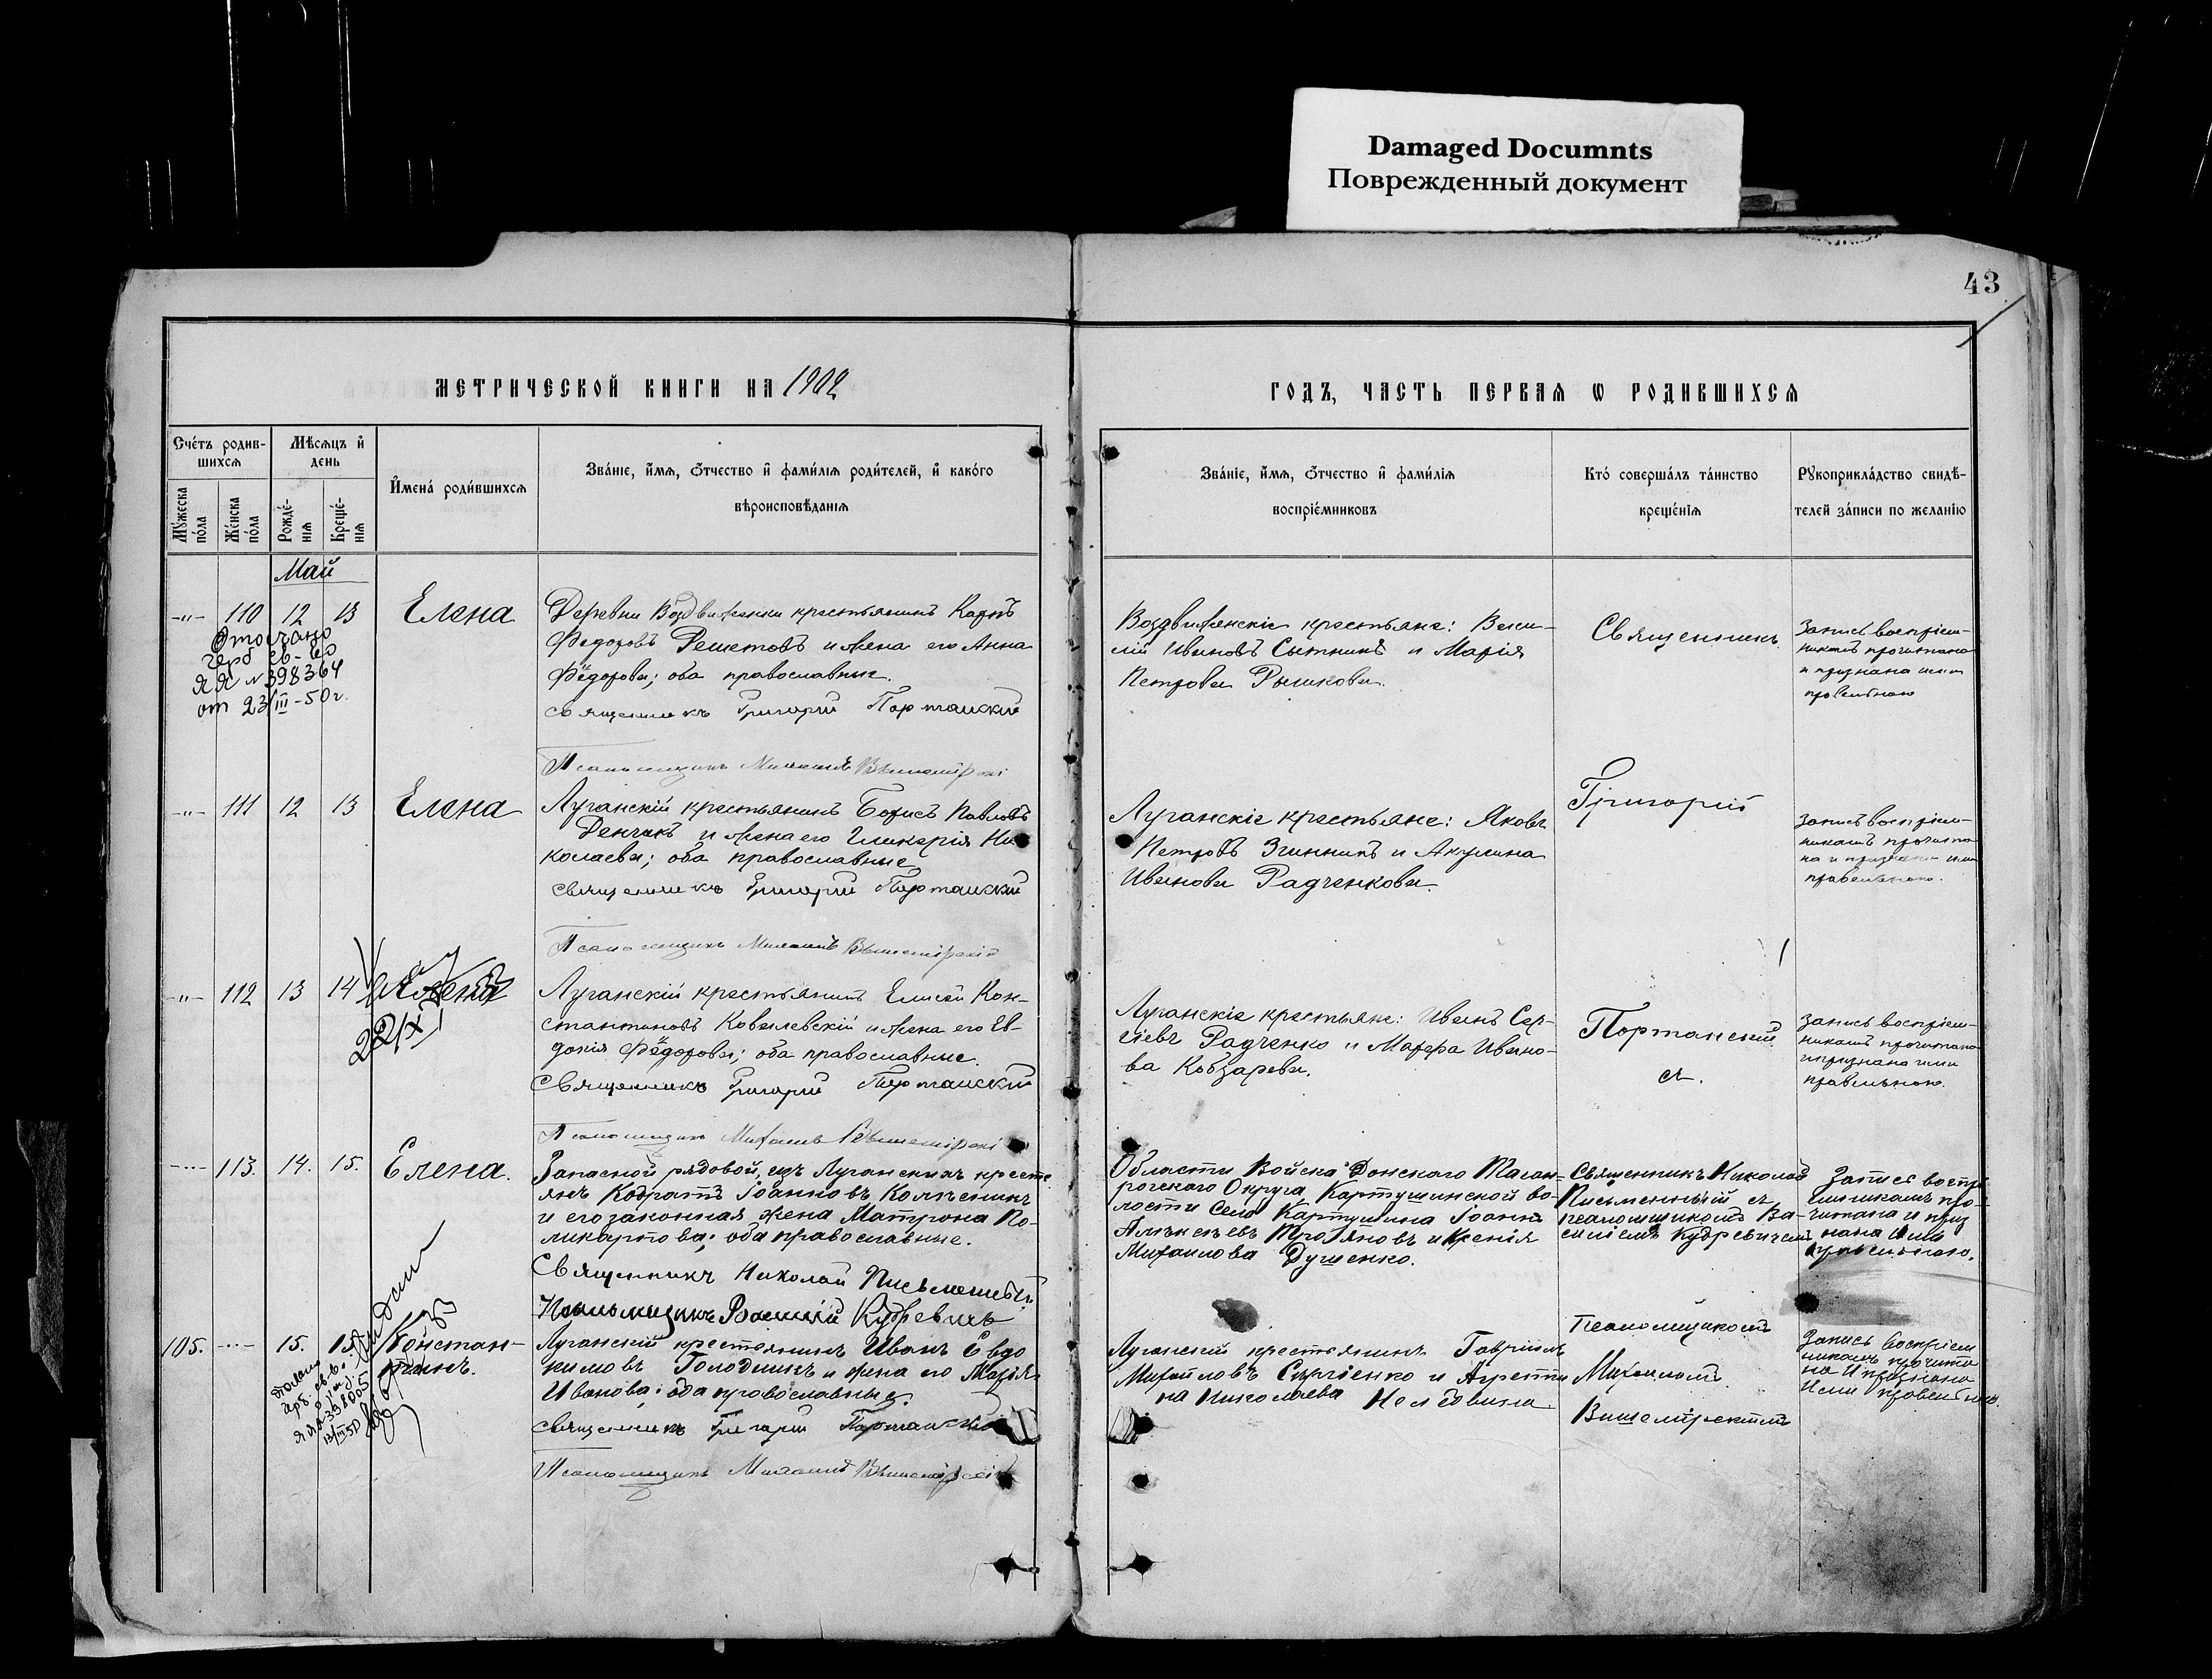 Damaged Documnts
Поврежденный документ
43
МЕТРИЧЕСКОЙ КНИГИ НА 1902
ГОДЪ, ЧАСТЬ ПЕРВАЯ Ѡ РОДИВШИХСЯ
Счетъ родив-
шихся
Мужеска
пола
Женска
пола
Мѣсяцъ и
день
Рожде-
нія
Креще-
нія
Имена родившихся
Званіе, имя, отчество и фамилія родителей, и какого
вѣроисповѣданія
Званіе, имя, отчество и фамилія
воспріемниковъ
Кто совершалъ таинство
крещенія
Рукоприкладство свидѣ-
телей записи по желанію
Май
-"- 110 12 13 Елена
герб св-во
ЯЯ № 398364
от 23/III-50г.
Деревни Воздвиженки крестьянинъ Карпъ
Федоровъ Решетовъ и жена его Анна
Фёдорова; оба православные.
священникъ Григорій Портанскій
Псаломщикъ Михаилъ Вышемірскі
Воздвиженскіе крестьяне: Васи-
лій Ивановъ Сытникъ и Марія
Петрова Рышкова.
Священникъ
Запись воспріем-
никамъ прочитана
и признана ими
правильною
-"- 111 12 13 Елена
Луганскій крестьянинъ Борисъ Павловъ
Денчикъ и жена его Гликерія Ни
колаева; оба православные
священникъ Григорій Портанскій
Псаломщикъ Михаилъ Вышемірскій
Луганскіе крестьяне: Яковъ
Петровъ Згинникъ и Акулина
Иванова Радченкова.
Григорій
Запись воспріем-
никамъ прочита-
на и признана ими
правильною.
-"- 112 13 14
22/XI
Луганскій крестьянинъ Елисей Кон-
стантиновъ Ковалевскій и жена его Ев-
докія Фёдорова; оба православные.
Священникъ Григорій Портанскій
Псаломщикъ Михаилъ Вышемірскі
Луганскіе крестьяне: Иванъ Сер-
гіевъ Радченко и Марфа Ивано-
ва Кобзарева.
Портанскій
съ.
Запись воспріем-
никамъ прочитана
и признана ими
правильною.
113. 14. 15. Елена.
Запасной рядовой, изъ Луганскихъ кресть
янъ Кодратъ Іоанновъ Колѣсникъ
и его законная жена Матрона По-
ликарпова; оба православные.
Священникъ Николай Письменный.
Псаломщикъ Василій Кудревичъ
Области Войска Донского Таган-
рогскаго Округа Картушинской во-
лости Села Картушина Іоаннъ
Алѣксѣевъ Трояновъ и Ксенія
Михаилова Душенко.
Священникъ Николай
Письменный съ
псаломщикомъ Ва-
силіемъ Кудревичемъ
Запись воспрі
емникамъ про-
читана и приз
нана ими
правильною.
105. 15. 15. Констан-
тинъ.
Луганскій крестьянинъ Иванъ Евдо
кимовъ Голодникъ и жена его Марія
Иванова; оба православные.
священникъ Григорій Портанскій
Псаломщикъ Михаилъ Вышемірскій
Луганскій крестьянинъ Гавріилъ
Михайловъ Сергіенко и Агрепи
на Николаева
Псаломщикомъ
Михаиломъ
Вышемірскимъ
Запись воспріем
никамъ прочита
на и признана
ими правильною.